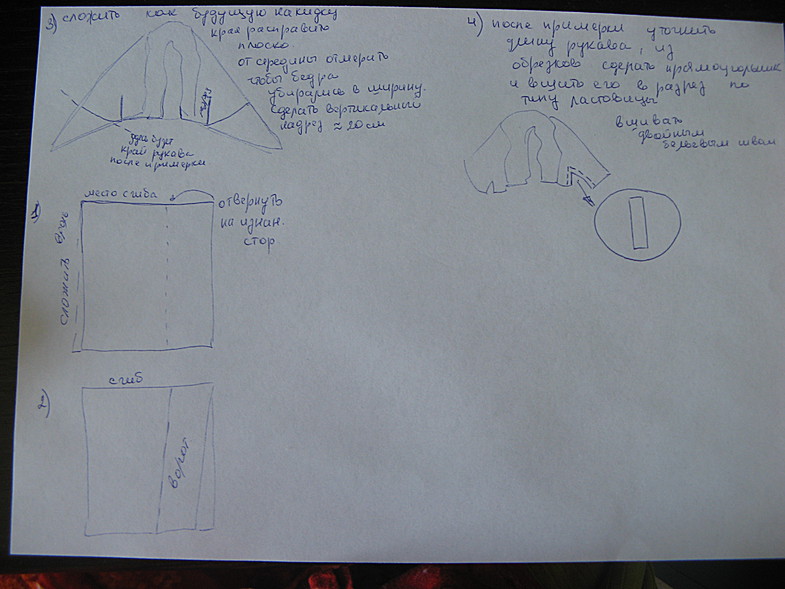 3) сложить как будущую накидку
края расправить
плоско.
от середины отмерить
чтобы бедра
убирались в ширину.
сделать вертикальный
надрез ≈ 20 см
надрез
здесь будет
край рукава
после примерки
4) после примерки уточнить
длину рукава, из
обрезков сделать прямоугольник
и вшить его в разрез по
типу ластовицы
вшивать
двойным
бельевым швом
место сгиба
отвернуть
на изнан.
стор
сложить вдоль
сгиб
ворот